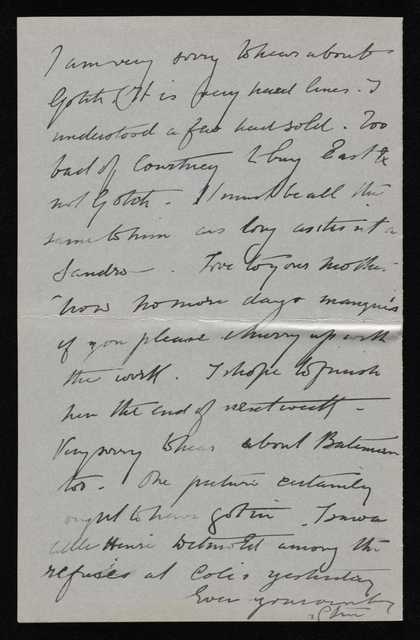 I am very sorry to hear about
Gotch. It is very hard lines. I
understood a few had sold. Too
bad of Courtney to buy East &
not Gotch. It must be all the
same to him as long as its not a
Sandro. Love to your Mother.
"how no more days
if you please & hurry up with
the work. I hope to finish
here the end of next week.
Very sorry to hear about Bateman
too. One picture certainly
ought to have got in. I saw a
little Henri among the
refusés at Colis yesterday
Ever yours